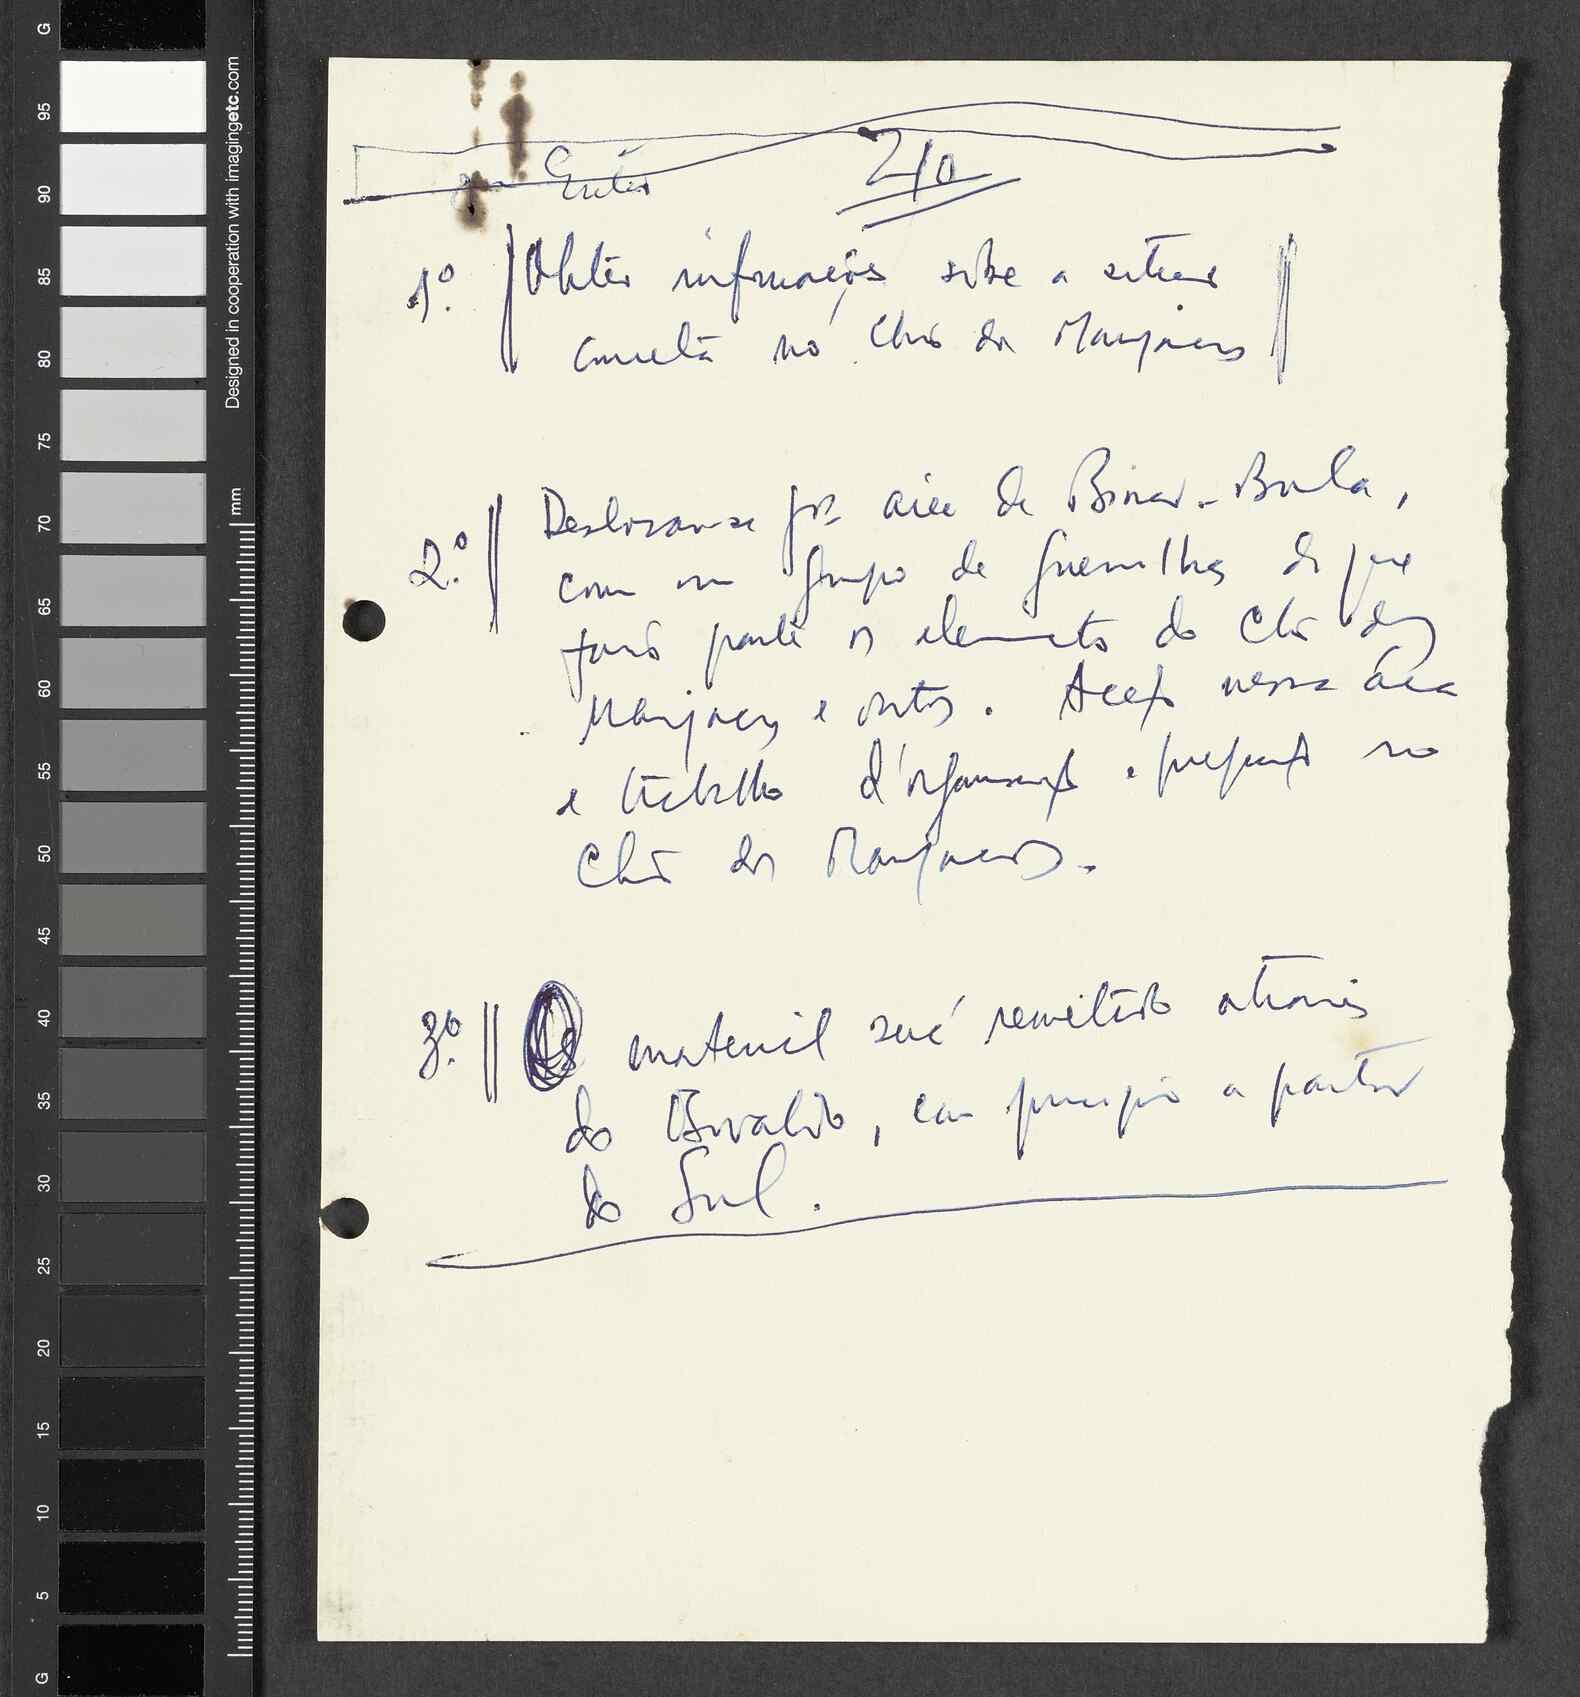 2/0
1º. Obter informações sobre a situação
concreta no Chão dos Manjacos
2.º Deslocar-se para área de Binar-Bula,
com um grupo de guerrilhas de que
farão parte os elementos do Chão dos
Manjacos e outros. Acção nessa área
e trabalho d'organização e preparação no
Chão dos Manjacos.
3º. material será remetido através
do Osvaldo, em princípio a partir
do Sul.
G
95
90
85
80
75
70
65
60
55
50
45
40
35
30
25
20
15
10
5
G
Designed in cooperation with imagingetc.com
mm